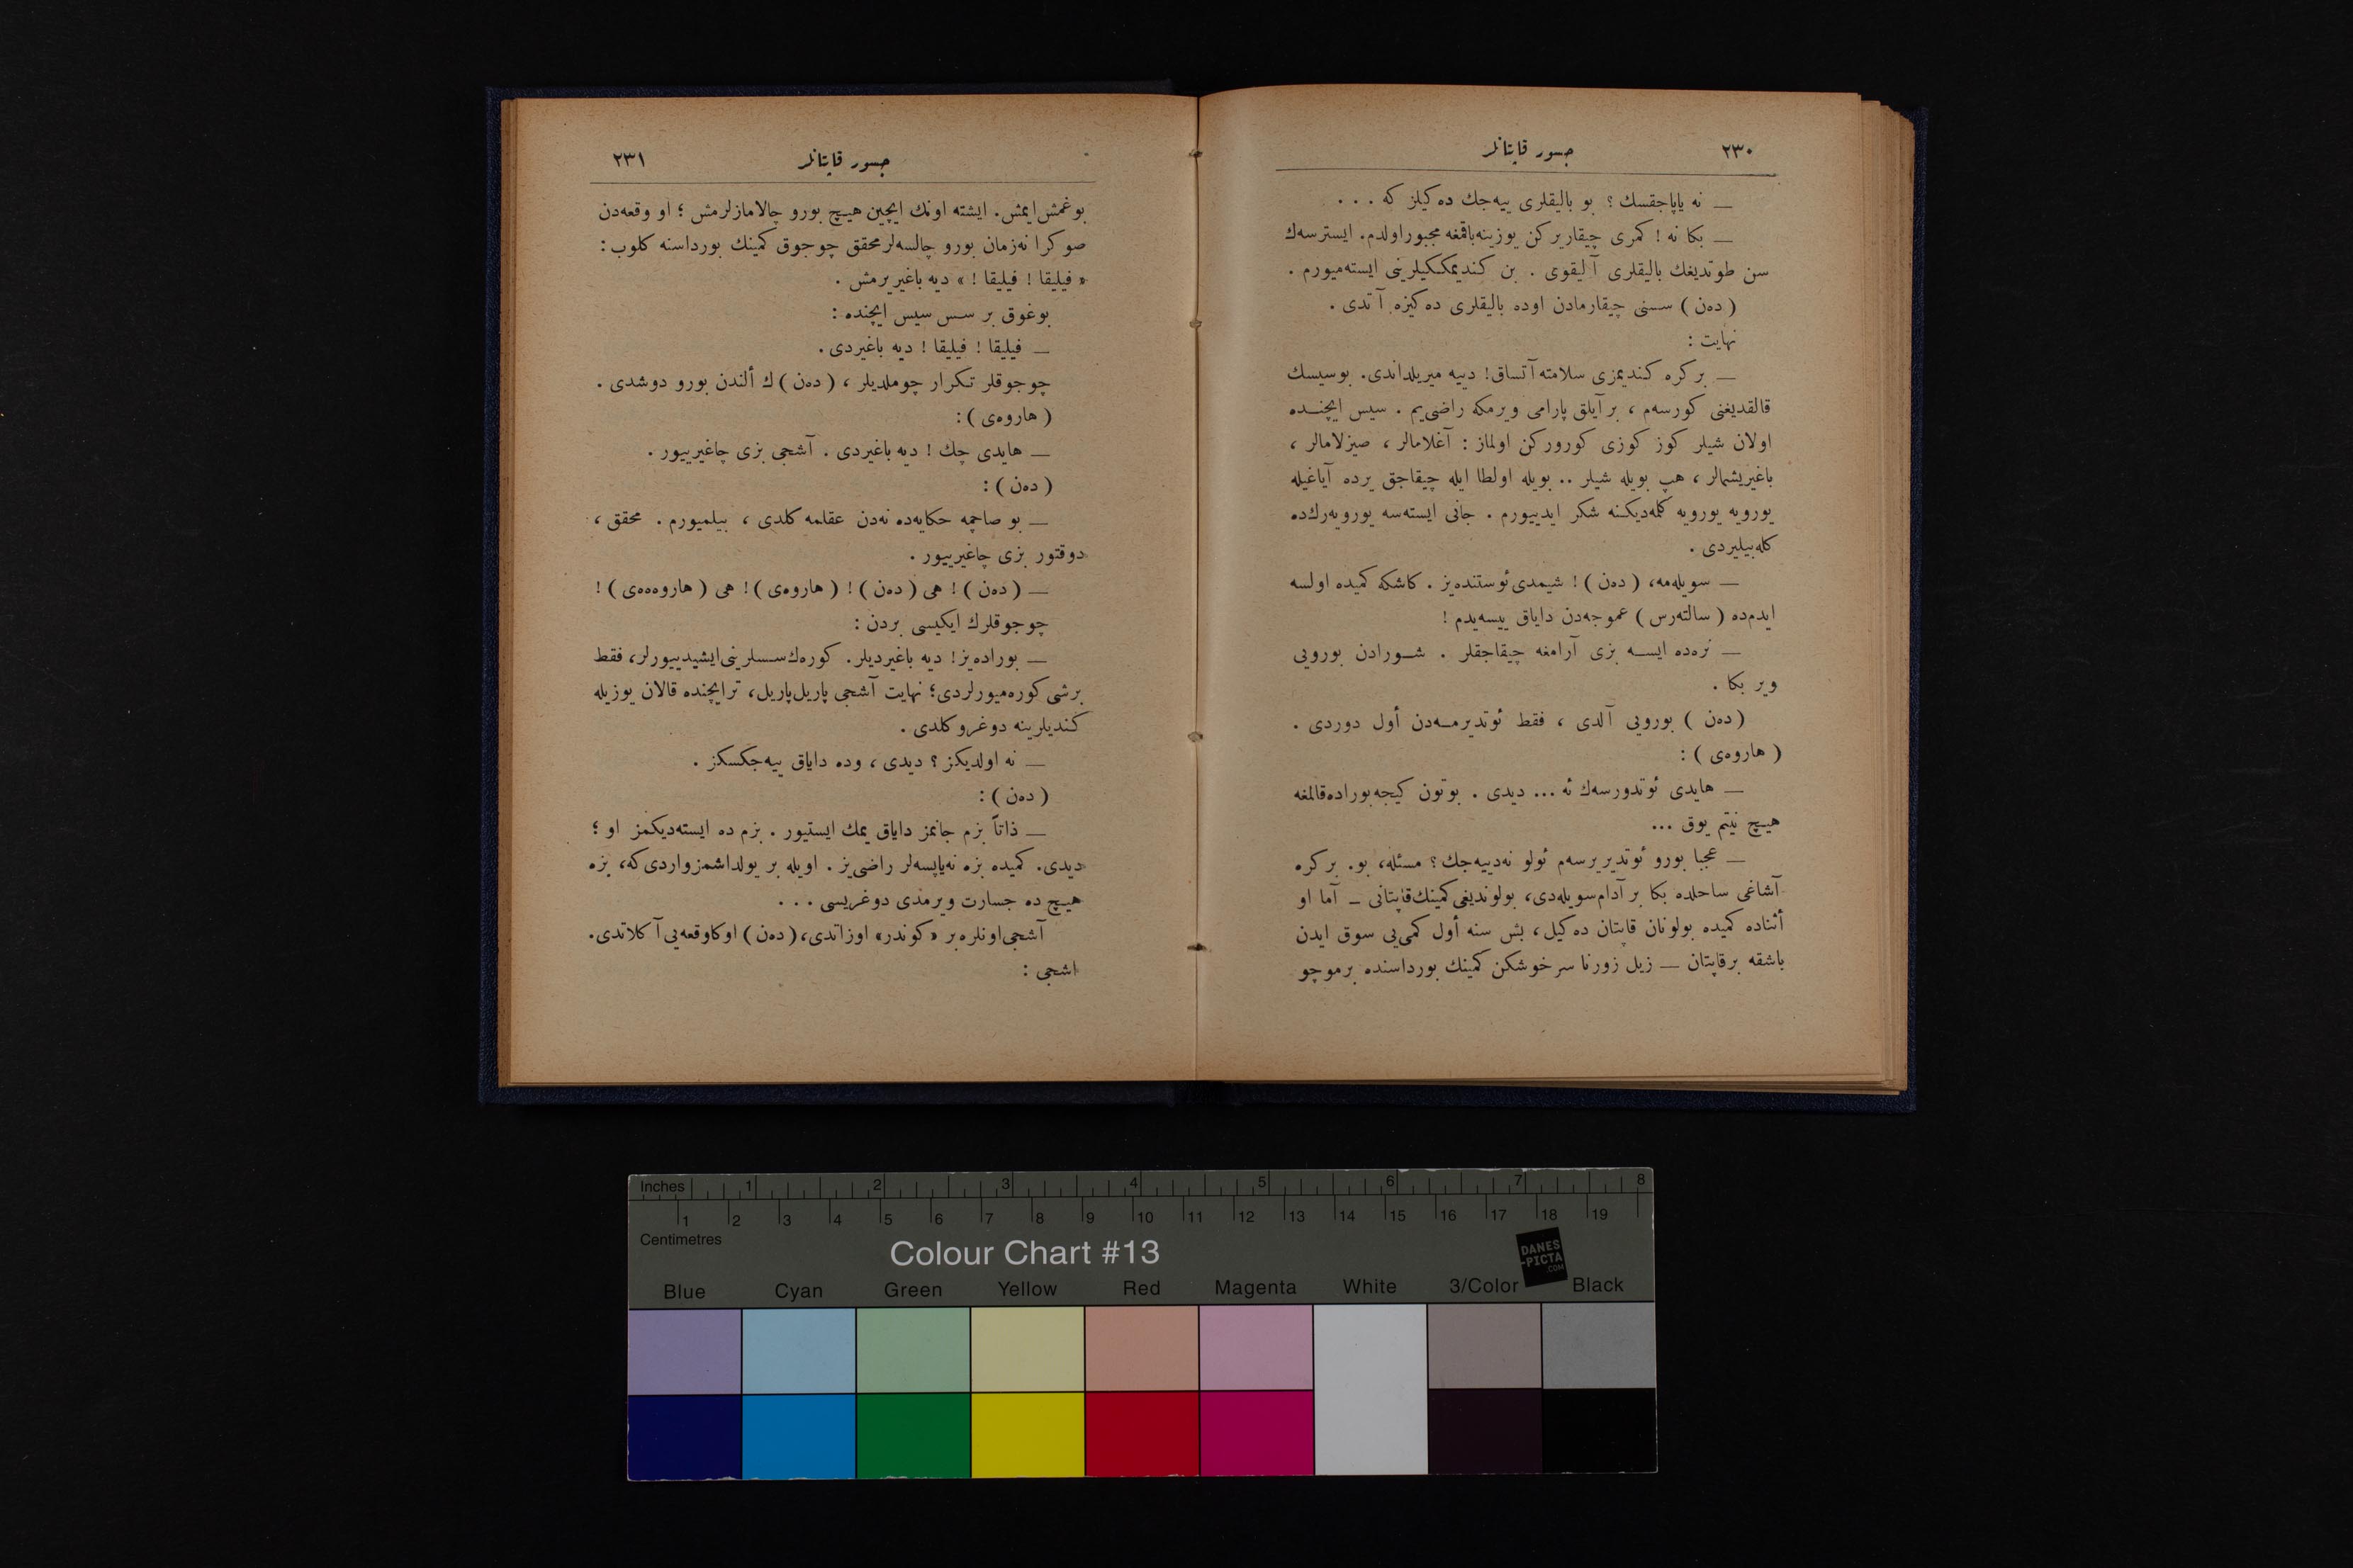 ٢٣٠
جسور قاپتانلر
— نه ياپاجقسك ؟ بو باليقلرى ييه‌جك ده‌كيلز كه . . .
— بكا نه ! كمرى چيقاريركن يوزينه‌باقمغه مجبور اولدم. ايسترسه‌ك
سن طوتديغك باليقلرى آليقوى . بن كنديمككيلرينى ايسته‌ميورم .
( ده‌ن ) سسنى چيقارمادن اوده باليقلرى ده‌كيزه آتدى .
نهايت :
— بر كره كنديمزى سلامته آتساق! دييه ميريلداندى. بوسيسك
قالقديغنى كورسه‌م ، بر آيلق پارامى ويرمكه راضى‌يم . سيس ايچنده
اولان شيلر كوز كوزى كوروركن اولماز : آغلامالر ، صيزلامالر ،
باغيريشمالر ، هپ بويله شيلر .. بويله اولطا ايله چيقاجق يرده آياغيله
يورويه يورويه كلمه‌ديكنه شكر ايدييورم . جانى ايسته‌سه يورويه‌رك‌ده
كله‌بيليردى .
— سويله‌مه، (ده‌ن) ! شيمدى ئوستنده‌يز . كاشكه كميده اولسه
ايدم‌ده ( سالته‌رس ) عموجه‌دن داياق ييسه‌يدم !
— نره‌ده ايسه بزى آرامغه چيقاجقلر . شورادن بورويى
وير بكا .
( ده‌ن ) بورويى آلدى ، فقط ئوتديرمه‌دن أول دوردى .
( هاروه‌ى ) :
— هايدى ئوتدورسه‌ك ئه ... ديدى . بوتون كيجه بوراده‌قالمغه
هيچ نيتم يوق ...
— عجبا بورو ئوتديريرسه‌م ئولو نه‌دييه‌جك؟ مسئله، بو. بر كره
آشاغى ساحلده بكا بر آدام سويله‌دى، بولونديغى كمينك قاپتانى — آما او
أثناده كميده بولونان قاپتان ده‌كيل، بش سنه أول كمى‌يى سوق ايدن
باشقه برقاپتان — زيل زورنا سرخوشكن كمينك بورداسنده برموچو
جسور قاپتانلر
٢٣١
بوغمش‌ايمش. ايشته اونك ايچين هيچ بورو چالامازلرمش ؛ او وقعه‌دن
صوكرا نه‌زمان بورو چالسه‌لر محقق چوجوق كمينك بورداسنه كلوب :
« فيليقا ! فيليقا ! » ديه باغيريرمش .
بوغوق بر سس سيس ايچنده :
— فيليقا ! فيليقا ! ديه باغيردى .
چوجوقلر تكرار چوملديلر ، (ده‌ن) ك ألندن بورو دوشدى .
( هاروه‌ى ) :
— هايدى چك ! ديه باغيردى . آشجى بزى چاغيرييور .
( ده‌ن ) :
— بو صاچمه حكايه‌ده نه‌دن عقلمه كلدى ، بيلميورم . محقق ،
دوقتور بزى چاغيرييور .
— ( ده‌ن ) ! هى ( ده‌ن ) ! ( هاروه‌ى ) ! هى ( هاروه‌ه‌ه‌ه‌ى ) !
چوجوقلرك ايكيسى بردن :
— بوراده‌يز ! ديه باغيرديلر. كوره‌ك‌سسلرينى‌ايشيدييورلر، فقط
برشى كوره‌ميورلردى؛ نهايت آشجى پاريل‌پاريل، ترايچنده قالان يوزيله
كنديلرينه دوغرو كلدى .
— نه اولديكز ؟ ديدى ، وده داياق ييه‌جكسكز .
( ده‌ن ) :
— ذاتاً بزم جانمز داياق يمك ايستيور . بزم ده ايسته‌ديكمز او ؛
ديدى. كميده بزه نه‌ياپسه‌لر راضى‌يز . اويله بر يولداشمز واردى كه، بزه
هيچ ده جسارت ويرمدى دوغريسى . . .
آشجى اونلره بر «كوندر» اوزاتدى، (ده‌ن) اوكا وقعه‌يى آكلاتدى.
اشجى :
Inches 1 2 3 4 5 6 7 8
1 2 3 4 5 6 7 8 9 10 11 12 13 14 15 16 17 18 19
Centimetres
Colour Chart #13
DANES
-PICTA
.COM
Blue Cyan Green Yellow Red Magenta White 3/Color Black